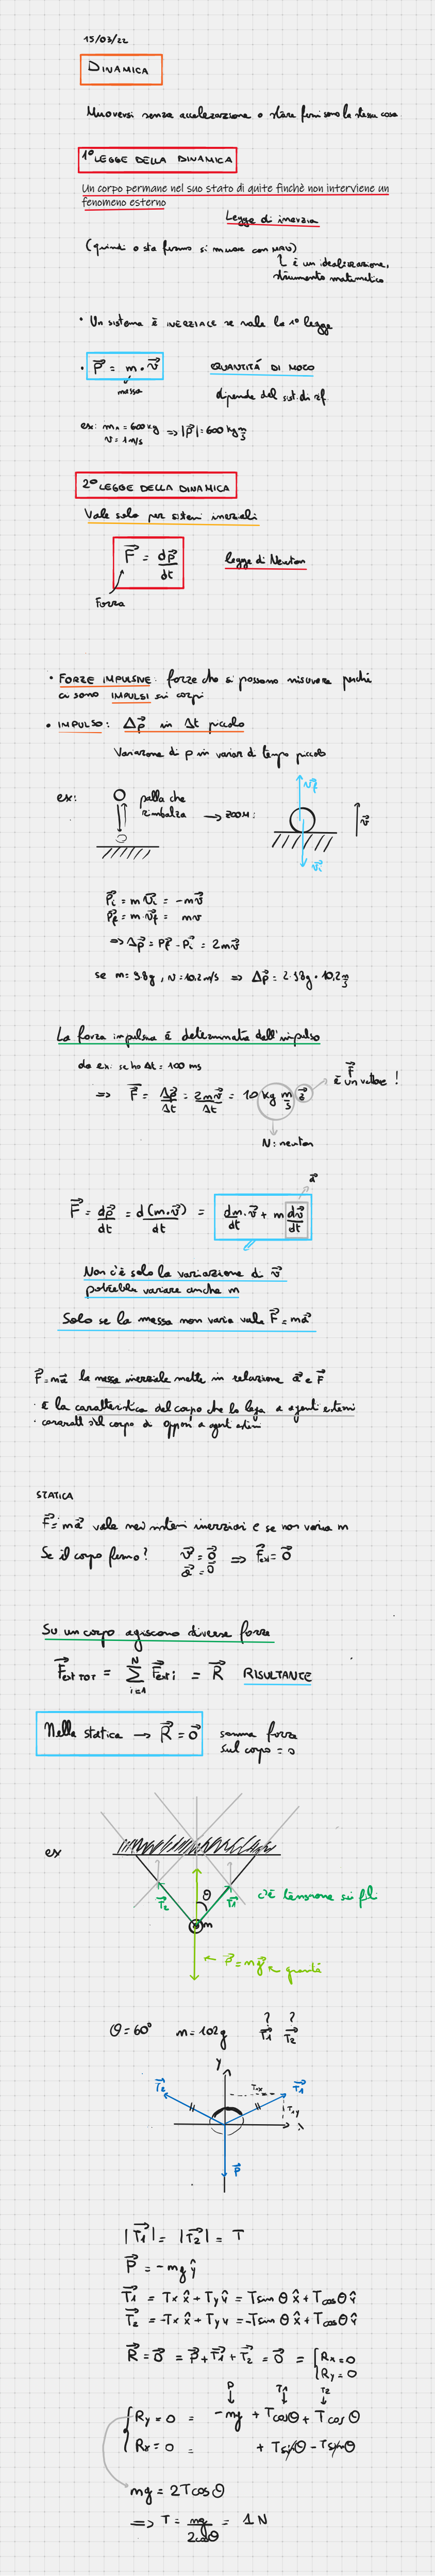 15/03/22
DINAMICA
Muoversi senza accelerazione o stare fermi sono la stessa cosa
1° LEGGE DELLA DINAMICA
Un corpo permane nel suo stato di quite finchè non interviene un
fenomeno esterno
Legge di inerzia
(quindi o sta fermo si muove con MRU)
è un idealizzazione,
strumento matematico
• Un sistema è INERZIALE se vale la 1° legge
• p⃗ = m · v⃗ QUANTITÁ DI MOTO
massa
dipende del sist. di rf.
es: m₁ = 600 kg ⇒ |p⃗| = 600 kg m/s
v = 1 m/s
2° LEGGE DELLA DINAMICA
Vale solo per sistemi inerziali
F⃗ = dp⃗/dt legge di Newton
Forza
• FORZE IMPULSIVE: forze che si possono misurare perché
ci sono IMPULSI sui corpi
• IMPULSO: Δp⃗ in Δt piccolo
Variazione di p in variaz di tempo piccolo
ex: palla che
rimbalza → ZOOM:
v⃗f
v⃗
v⃗i
p⃗i = m v⃗i = -mv⃗
p⃗f = m · v⃗f = mv
⇒ Δp⃗ = p⃗f - p⃗i = 2mv⃗
se m = 98g, v = 10,2 m/s ⇒ Δp⃗ = 2·98g · 10,2 m/s
La forza impulsiva è determinata dell'impulso
da ex: se ho Δt = 100 ms
⇒ F⃗ = Δp⃗/Δt = 2mv⃗/Δt = 10 kg m/s² → F⃗ è un vettore!
N: newton
a⃗
F⃗ = dp⃗/dt = d(m·v⃗)/dt = dm/dt · v⃗ + m dv⃗/dt
Non c'è solo la variazione di v⃗
potrebbe variare anche m
Solo se la massa non varia vale F⃗ = ma⃗
F⃗ = ma⃗ la massa inerziale mette in relazione a⃗ e F⃗
· è la caratteristica del corpo che lo lega a agenti esterni
· caratt del corpo di opporsi a agenti esterni
STATICA
F⃗ = ma⃗ vale nei sistemi inerziali e se non varia m
Se il corpo fermo? v⃗ = 0⃗ ⇒ F⃗ext = 0⃗
a⃗ = 0⃗
Su un corpo agiscono diverse forze
F⃗ext TOT = Σ i=1 N F⃗ext i = R⃗ RISULTANTE
Nella statica → R⃗ = 0⃗ somma forze
sul corpo = 0
ex
θ
T⃗2 T⃗1 c'è tensione sui fili
m
← P⃗ = mg⃗ ← gravità
θ = 60° m = 102g ? T⃗1 ? T⃗2
y
T⃗2 T1x T⃗1
T1y
x
P⃗
|T⃗1| = |T⃗2| = T
P⃗ = -mg ŷ
T⃗1 = Tx x̂ + Ty ŷ = T sin θ x̂ + T cos θ ŷ
T⃗2 = -Tx x̂ + Ty ŷ = -T sin θ x̂ + T cos θ ŷ
R⃗ = 0⃗ = P⃗ + T⃗1 + T⃗2 = 0⃗ = { Rx = 0
Ry = 0
P T1 T2
{ Ry = 0 = -mg + T cos θ + T cos θ
Rx = 0 = + T sin θ - T sin θ
mg = 2T cos θ
⇒ T = mg/2cosθ = 1 N